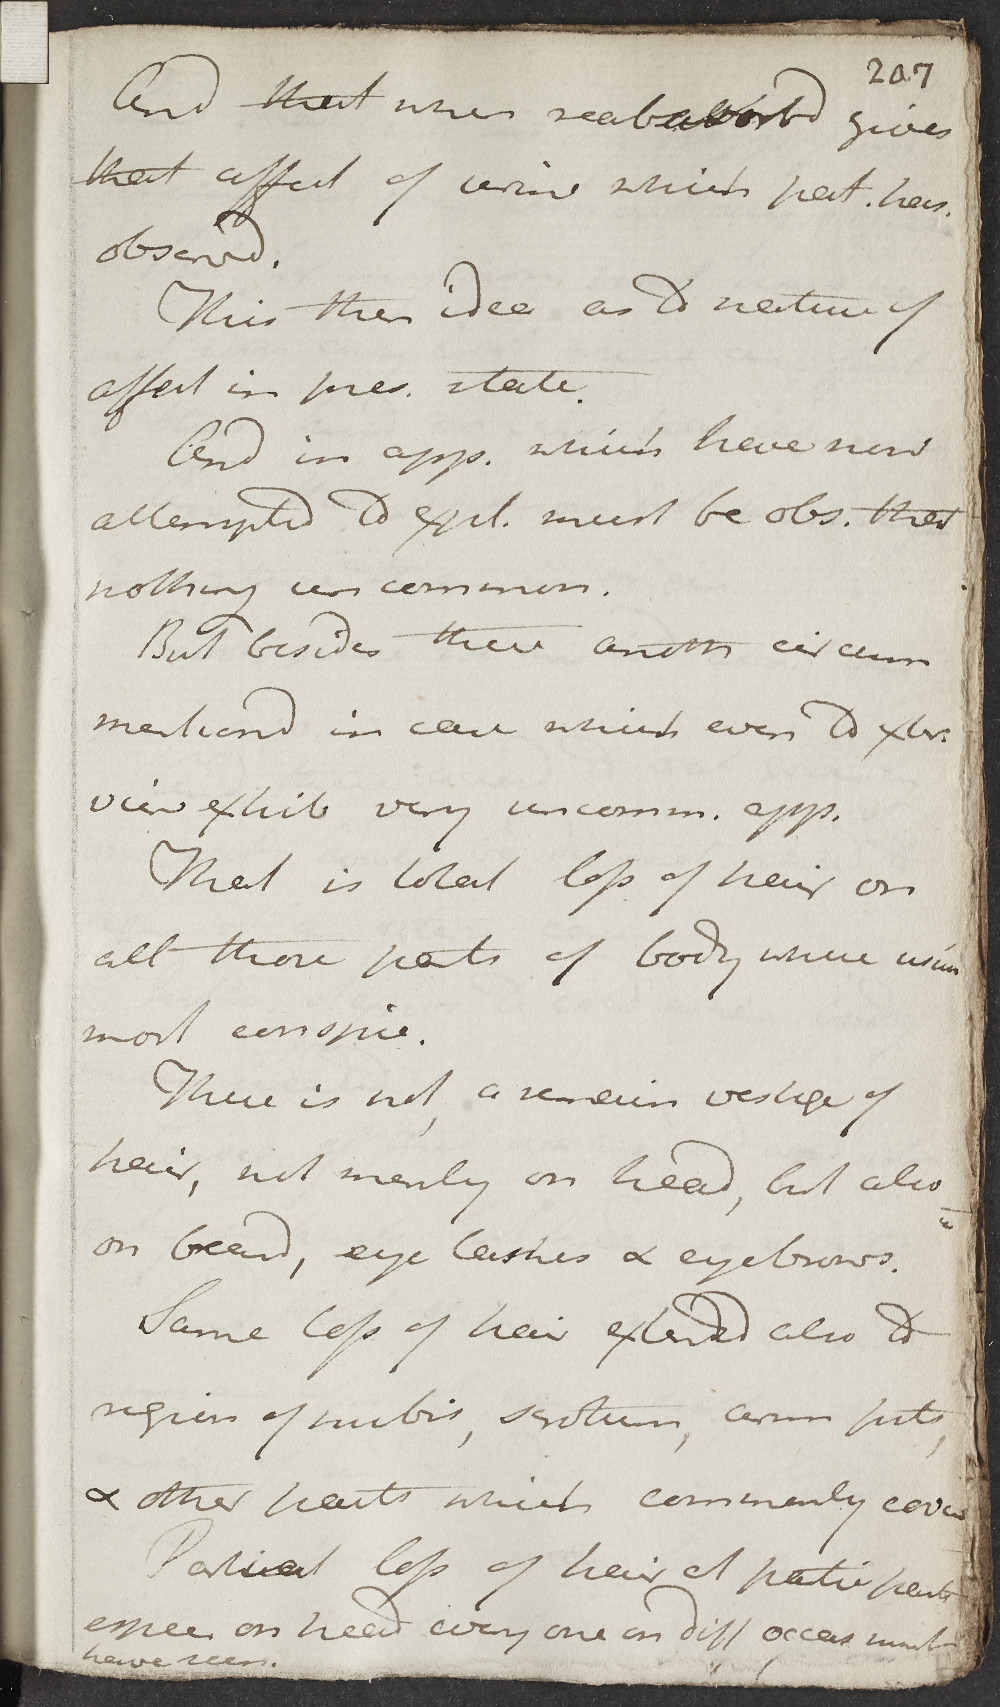 207
And that when reabsorbd gives
that affect of urine which pat. has.
observd.
This then idea as to nature of
affect in pres. state.
And in app. which have now
attempted to expl. must be obs. that
nothing uncommon.
But besides there anoth circum
mentiond in case which even to exter.
view exhib very uncomm. app.
That is total loss of hair on
all those parts of body where usu
most conspic.
There is not, a remain vestige of
hair, not merely on head, but also
on beard, eye lashes & eyebrows.
Same loss of hair extended also to
region of pubis, scrotum, arm pits,
& other parts which commonly cover
Partial loss of hair at partic parts
espec on head every one on diff occas must
have seen.